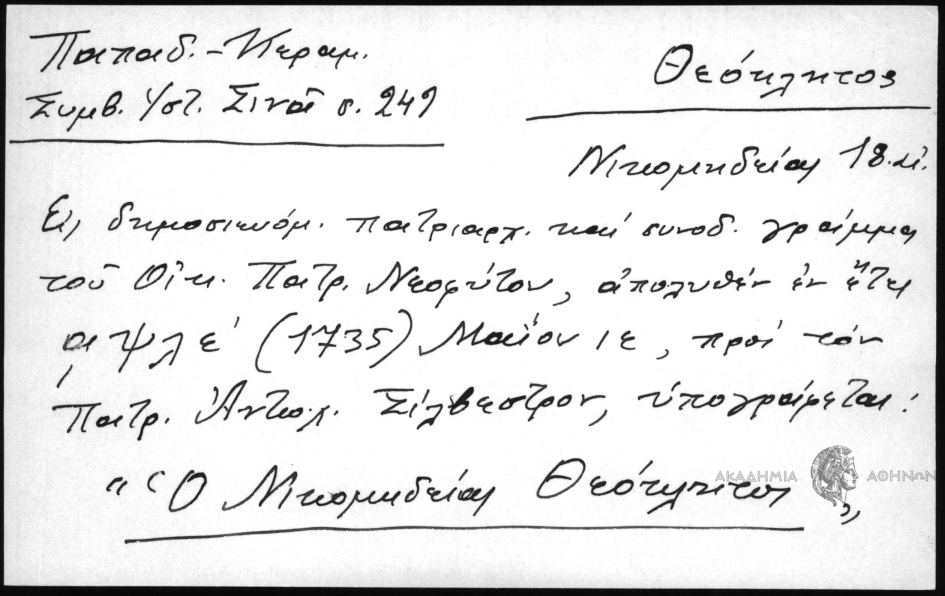 Παπαδ.-Κεραμ.
Συμβ. Ἱστ. Σινᾶ σ. 249
Θεόκλητος
Νικομηδείας 18. αἰ.
Εἰς δημοσιευόμ. πατριαρχ. καί συνοδ. γράμμα
τοῦ Οἰκ. Πατρ. Νεοφύτου, ἀπολυθέν ἐν ἔτει
͵αψλε΄ (1735) Μαΐου ιε, πρός τόν
Πατρ. Ἀντιοχ. Σίλβεστρον, ὑπογράφεται:
"Ὁ Νικομηδείας Θεόκλητος"
ΑΚΑΔΗΜΙΑ ΑΘΗΝΩΝ